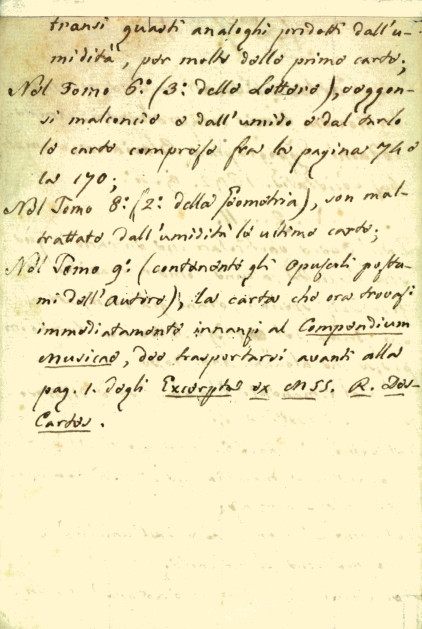 transi guasti analoghi prodotti dall'u-
midità, per molte delle prime carte;
Nel Tomo 6.º (3.º delle Lettere), veggon-
si malconcie e dall'umido e dal tarlo
le carte comprese fra la pagina 74 e
la 170;
Nel Tomo 8.º (2.º della Geometria), son mal-
trattate dall'umidità le ultime carte;
Nel Tomo 9.º (contenente gli Opuscoli postu-
mi dell'Autore), la carta che ora trovasi
immediatamente innanzi al Compendium
Musicae, dee trasportarsi avanti alla
pag. 1. degli Excerpta ex MSS. R. Des-
Cartes.